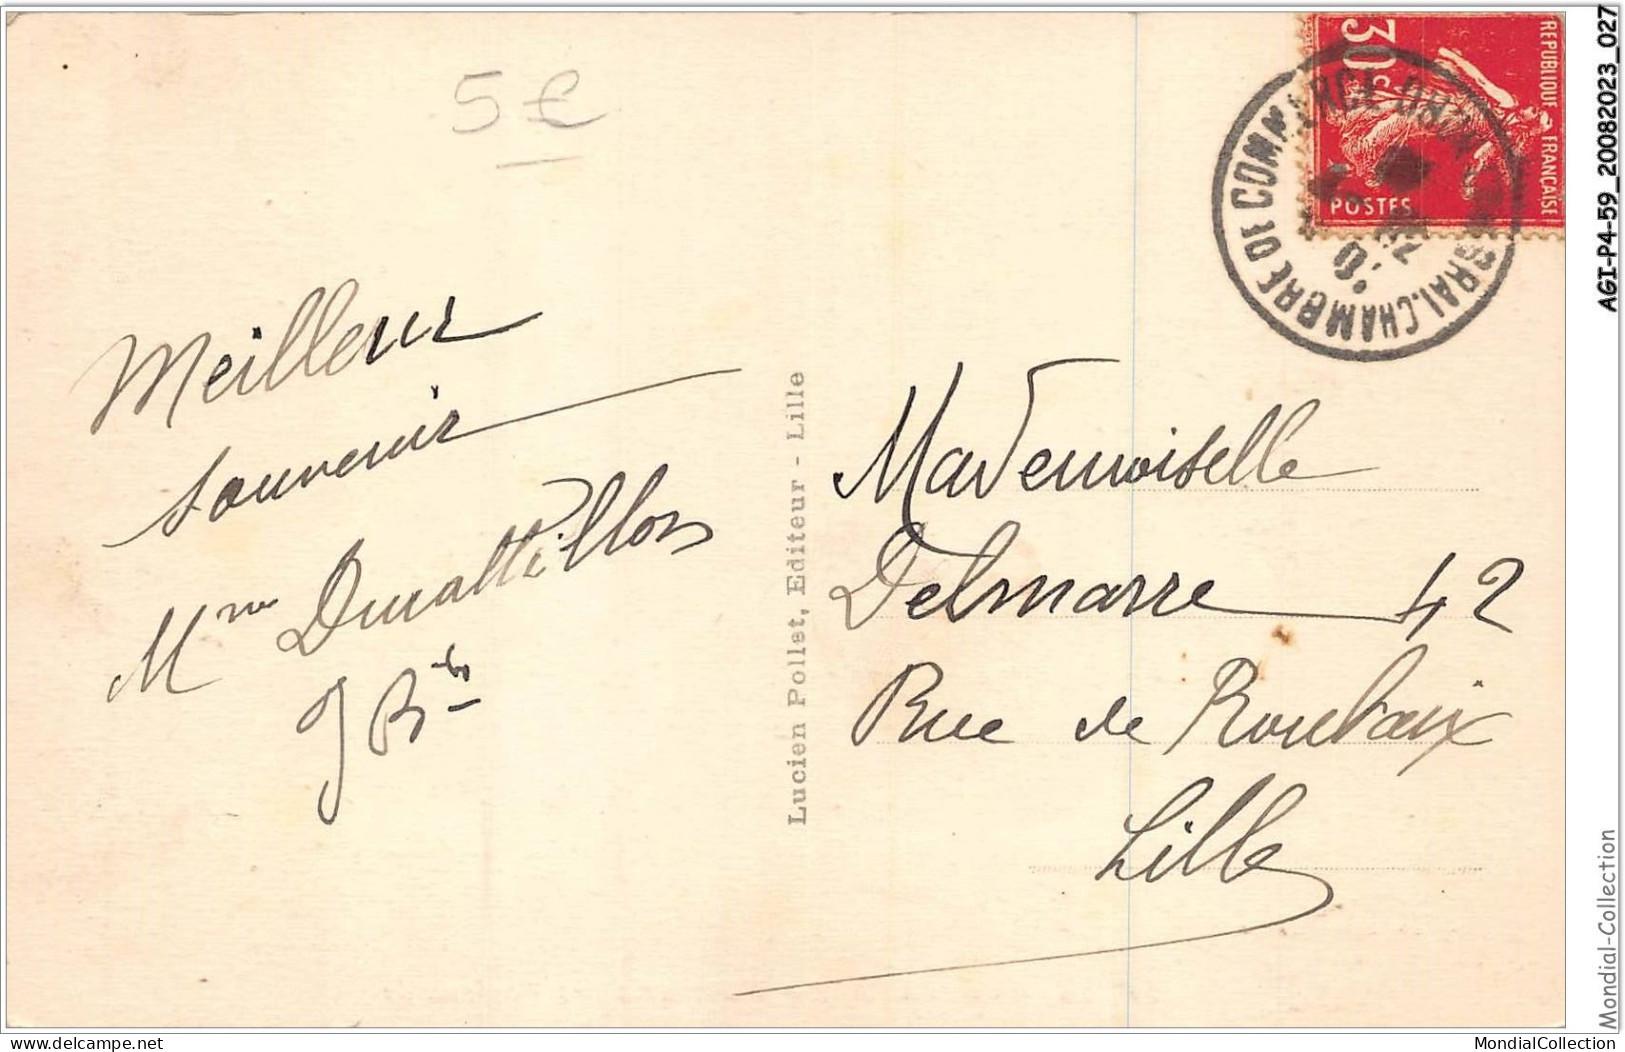 5 €
30 c
REPUBLIQUE FRANÇAISE
POSTES
CHAMBRE DE COMMERCE
Meilleur
souvenir
Mme
Mademoiselle
Delmarre 42
Rue de Roubaix
Lille
Lucien Pollet, Editeur - Lille
AGI-P4-59_20082023_027
Mondial-Collection
delcampe.net
MondialCollection